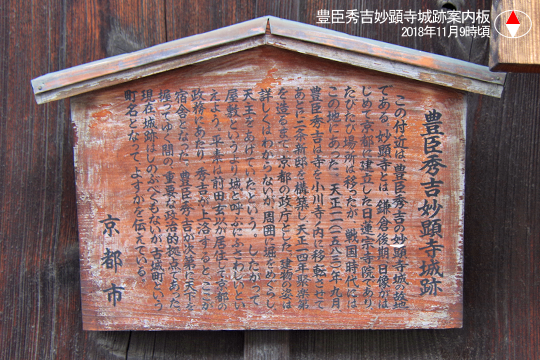 豊臣秀吉妙顕寺城跡案内板
2018年11月9時頃
豊臣秀吉妙顕寺城跡
この付近は、豊臣秀吉の妙顕寺城の故地
である。妙顕寺とは、鎌倉後期日像がは
じめて京都に建立した日蓮宗寺院であり
たびたび場所は移ったが、戦国時代には
この地にあった。天正一一(一五八三)年九月
豊臣秀吉は寺を小川寺ノ内に移転させて
あとに二条新邸を構築し、天正一四年聚楽第
を造るまで、京都の政庁とした。建物の姿は
詳しくはわからないが、周囲に堀をめぐらし
天主をあげていたという。したがって、
屋敷というより城と呼ぶにふさわしいとい
えよう。平素は前田玄以が居住して京都の
政務にあたり、秀吉が上洛すると、ここが
宿舎となった。豊臣秀吉が次第に天下を
握ってゆく間の、重要な政治的拠点であった。
現在城跡をしのぶべくもないが、古城町という
町名となって、よすがを伝えている。
京都市